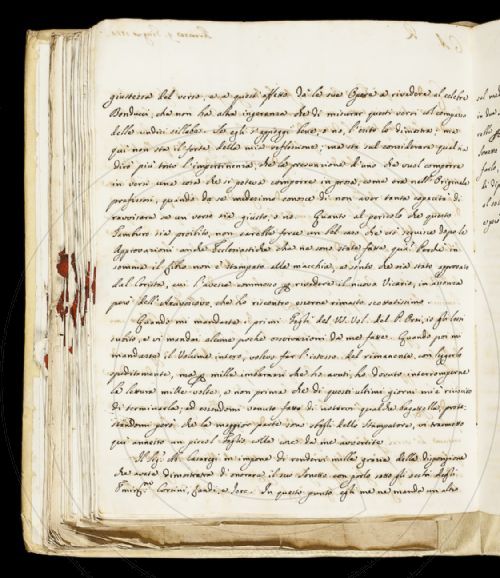 giustezza del verso, e a questo effetto dà le sue Opere a rivedere al celebre
Bonducci, che non ha altra ingerenza che di misurar questi versi col compasso
delle undici sillabe. Se egli s'appoggi bene, o no, l'esito lo dimostra; ma
qui non sta il forte della mia riflessione, ma sta sul considerare qual sia
dirò più tosto l'impertinenza, che la presunzione d'uno che vuol comporre
in versi una cosa che si poteva comporre in prosa, come era nell' Originale
professore, quando da se medesimo conosce di non aver tanta capacità di
ravvisare se un verso sia giusto, o no. Quanto al pericolo che questo
sia proibito, non sarebbe forse un bel caso che ciò seguisse dopo le
Approvazioni anche Ecclesiastiche che ne sono state fatte, Perché in
somma il libro non è stampato alla macchia, e sento che sia stato approvato
dal che l'aveva commesso rivedere il nuovo Vicario, in assenza
però dell' Arcivescovo, che ho riscontro esserne rimasto
Quando mi mandaste i primi Fogli del VII. Vol. del P. io gli lessi
subito, e vi mandai alcune poche osservazioni da me fatte. Quando poi mi
mandaste il Volume intero, volevo far l'istesso del rimanente, con leggerlo
speditamente, ma mille imbarazzi che ho avuti, ho dovuto interromperne
la lettura mille volte, e non prima che di questi ultimi giorni mi è riuscito
di terminarla, ed essendomi venuto fatto di notarvi qualche bagattella, prote-
standomi però che la maggior parte sono sbagli dello Stampatore, vi trasmetto
qui annesso un piccol Foglio colle cose da me avvertite.
Il Sig. Ab. Casaregi m'impone di rendervi mille grazie della disposizione
che avete dimostrato di onorare il suo Sonetto con porlo sotto gli occhi degli
Corsini, e In questo punto egli me ne manda un altro